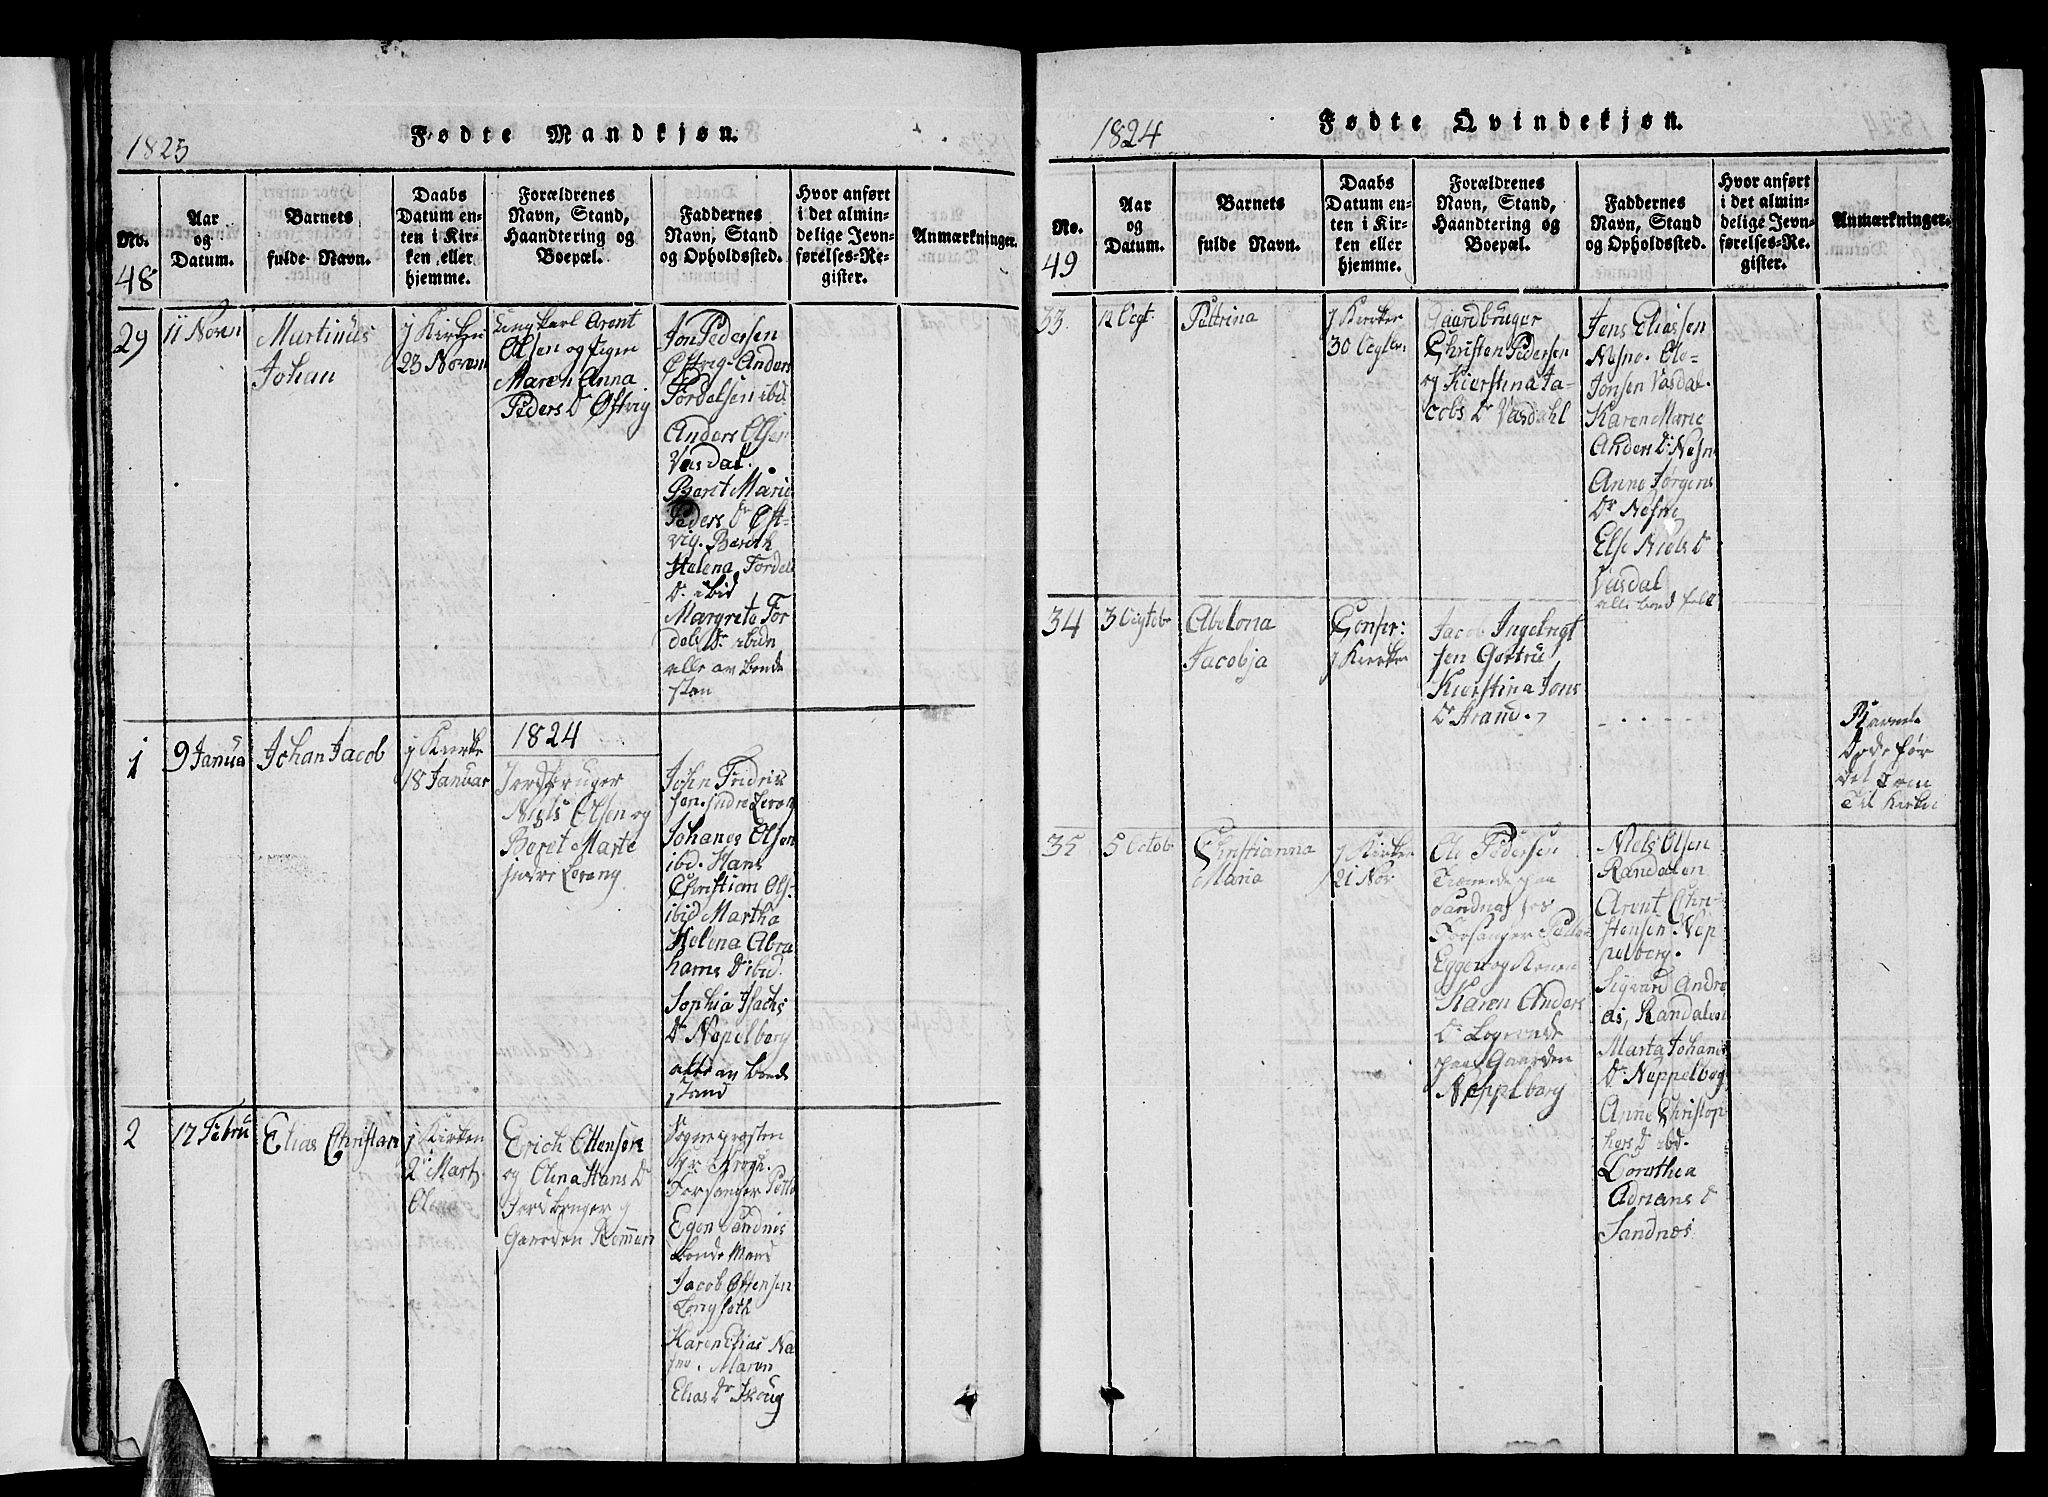 1823
Fødte Mandkjøn.
No.
48
Aar
og
Datum.
Barnets
fulde Navn.
Daabs
Datum en-
ten i Kir-
ken eller
hjemme.
Forældrenes
Navn, Stand,
Haandtering og
Boepæl.
Faddernes
Navn, Stand
og Opholdssted.
Hvor anført
i det almin-
delige Jevn-
førelses-Re-
gister.
Anmærkninger.
29
11 Noven
Martinus
Johan
j Kirken
23 Novem
Ungkarl Arent
Olsen og Pigen
Maren Anna
Peders Dr Østvig
Jon Pedersen
Østvig. Anders
Tordelsen ibid
Anders Olsen
Vasdal.
Beret Marie
Peders Dr Øst-
vig. Bereth
Helena Tordels
Dr ibid
Margrete Tor
dels Dr ibidn
alle av bonde
stan
1824
1
9 Janua
Johan Jacob
j Kirke
18 Januar
Jordbruger
Niels Olsen og
Beret Marte
indre Lerong
John Fridrik
sen indre Lerong
Johanes Olsen
ibd. Hans
Christian Ols-
ibid Martha
Helena Abra
hams Dr ibid.
Sophia Isachs
Dr Nepelberg
alle av bonde
stand
2
17 Febru
Elias Christan
j Kirken
2 Marts
Erich Ottensøn
og Olina Hans Dr
Jordbruger
Gaarden Remmen
Sognepræsten
Hr Krogh.
Forsanger Peter
Egen Sandnis
bonde Mand
Jacob Ottensen
Langseth
Karen Elias Ne
sno. Maren
Elias Dr Skoug
1824
Fødte Qvindekjøn.
No.
49
Aar
og
Datum.
Barnets
fulde Navn.
Daabs
Datum en-
ten i Kir-
ken eller
hjemme.
Forældrenes
Navn, Stand,
Haandtering og
Boepæl.
Faddernes
Navn, Stand
og Opholdssted.
Hvor anført
i det almin-
delige Jevn-
førelses-Re-
gister.
Anmærkninger.
33
12 Octt
Petrina
j Kircke
30
Gaardbruger
Christen Pedersen
og Kierstina Ja-
cobs Dr Vasdahl
Jens Eliassen
Nesno. Ole-
Jonsen Vasdal.
Karen Marie
Anders Dr Nesn
Anne Jørgens
Dr Nesne
Else Niels Dr
Vasdal
alle bond folk
34
3
Abelona
Jacobja
Confir:
j Kircke
Jacob Ingebrigt
sen
Kierstina Jons
Dr Strand.
Barnet
Døde før
det kom
Til Kirke
35
5 Octob
Christianna
Maria
j Kircke
21 Nov
Ole Pedersen
Tienende paa
Sandnæs hos
Forsanger Peder
Eggen og Konen
Karen Anders
Dr Logerende
paa Gaarden
Neppelberg
Niels Olsen
Randalen
Arent Chri-
stensen Nep-
pelberg.
Sigvard Andre
as, Randalen
Marta Johanes
Dr Neppelberg
Anne Christop
hers Dr ibd.
Dorothea
Adrians Dr
Sandnæs